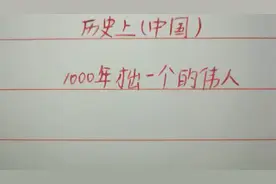 历史上(中国)
1000年拙一个的伟人